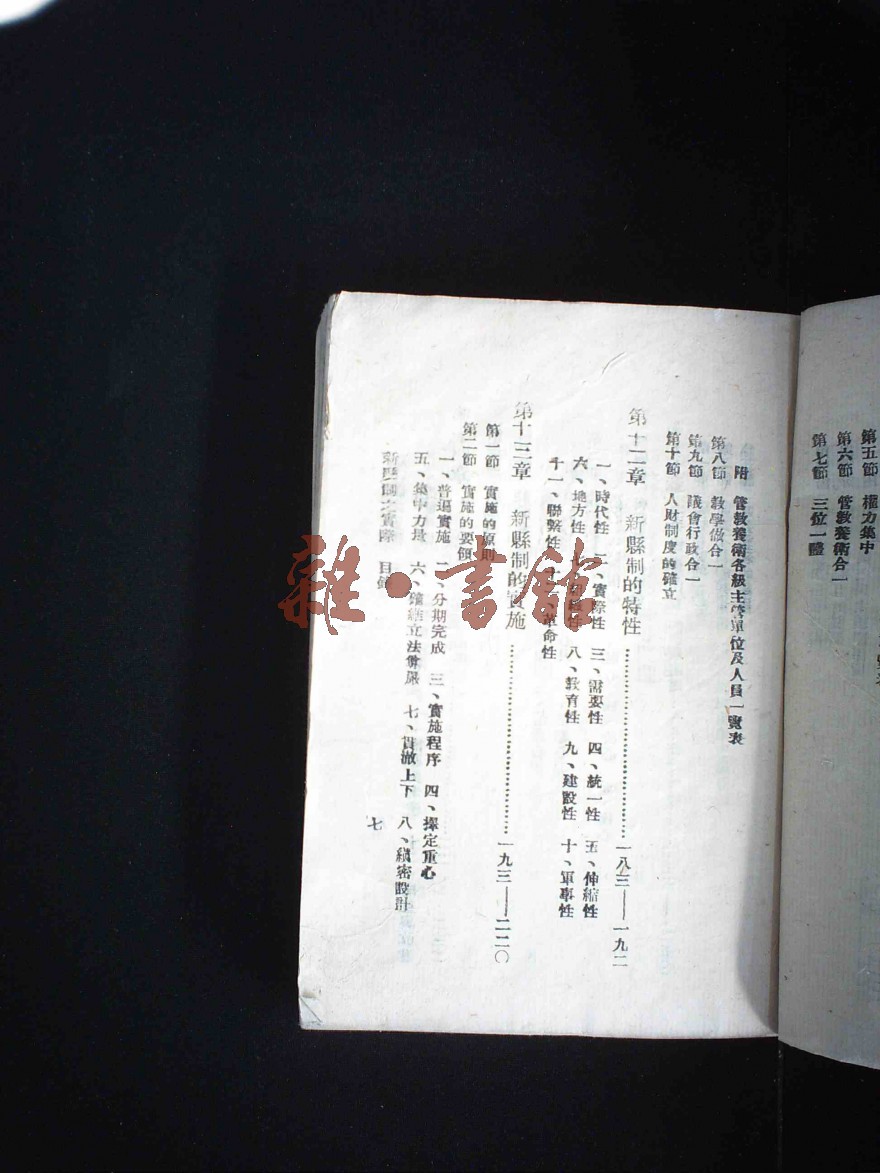 第五節 權力集中
第六節 管教養衛合一
第七節 三位一體
附 管教養衛各級主管單位及人員一覽表
第八節 教學做合一
第九節 議會行政合一
第十節 人財制度的確立
第十二章 新縣制的特性…………一八三——一九二
一、時代性 二、實際性 三、需要性 四、統一性 五、伸縮性
六、地方性 八、教育性 九、建設性 十、軍事性
十一、聯繫性 革命性
第十三章 新縣制的實施…………一九三——二二〇
第一節 實施的原則
第二節 實施的要領
一、普遍實施 二、分期完成 三、實施程序 四、擇定重心
五、集中力量 六、確立法律尊嚴 七、貫澈上下 八、縝密設計
新縣制之實際 目錄
七
雜·書館